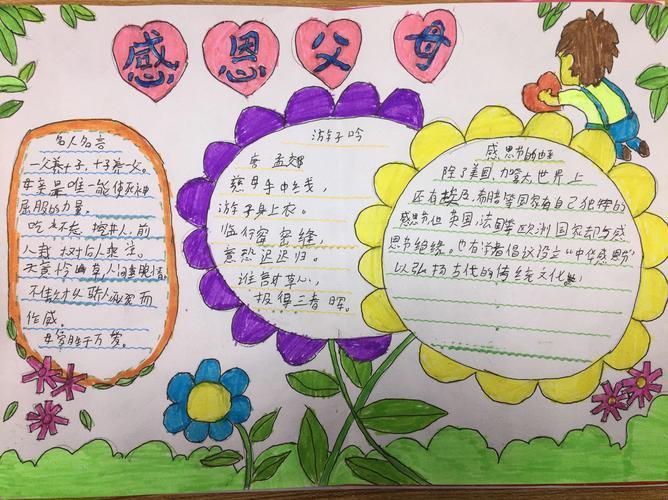 感恩父母
名人名言
一父养十子,十子养一父。
母亲是唯一能使死神
屈服的力量。
吃水不忘挖井人,前
人栽树后人乘
作感
母爱胜于万爱。
游子吟
唐 孟郊
慈母手中线,
游子身上衣。
临行密密缝,
意恐迟迟归。
谁言寸草心,
报得三春晖。
感恩节的由
除了美国,加拿大世界上
还有埃及,希腊等国家有自己独特的
感恩节但英国,法国等欧洲国家却与感
恩节绝缘。也有学者倡议设立"中华感恩节"
以弘扬古代的传统文化。